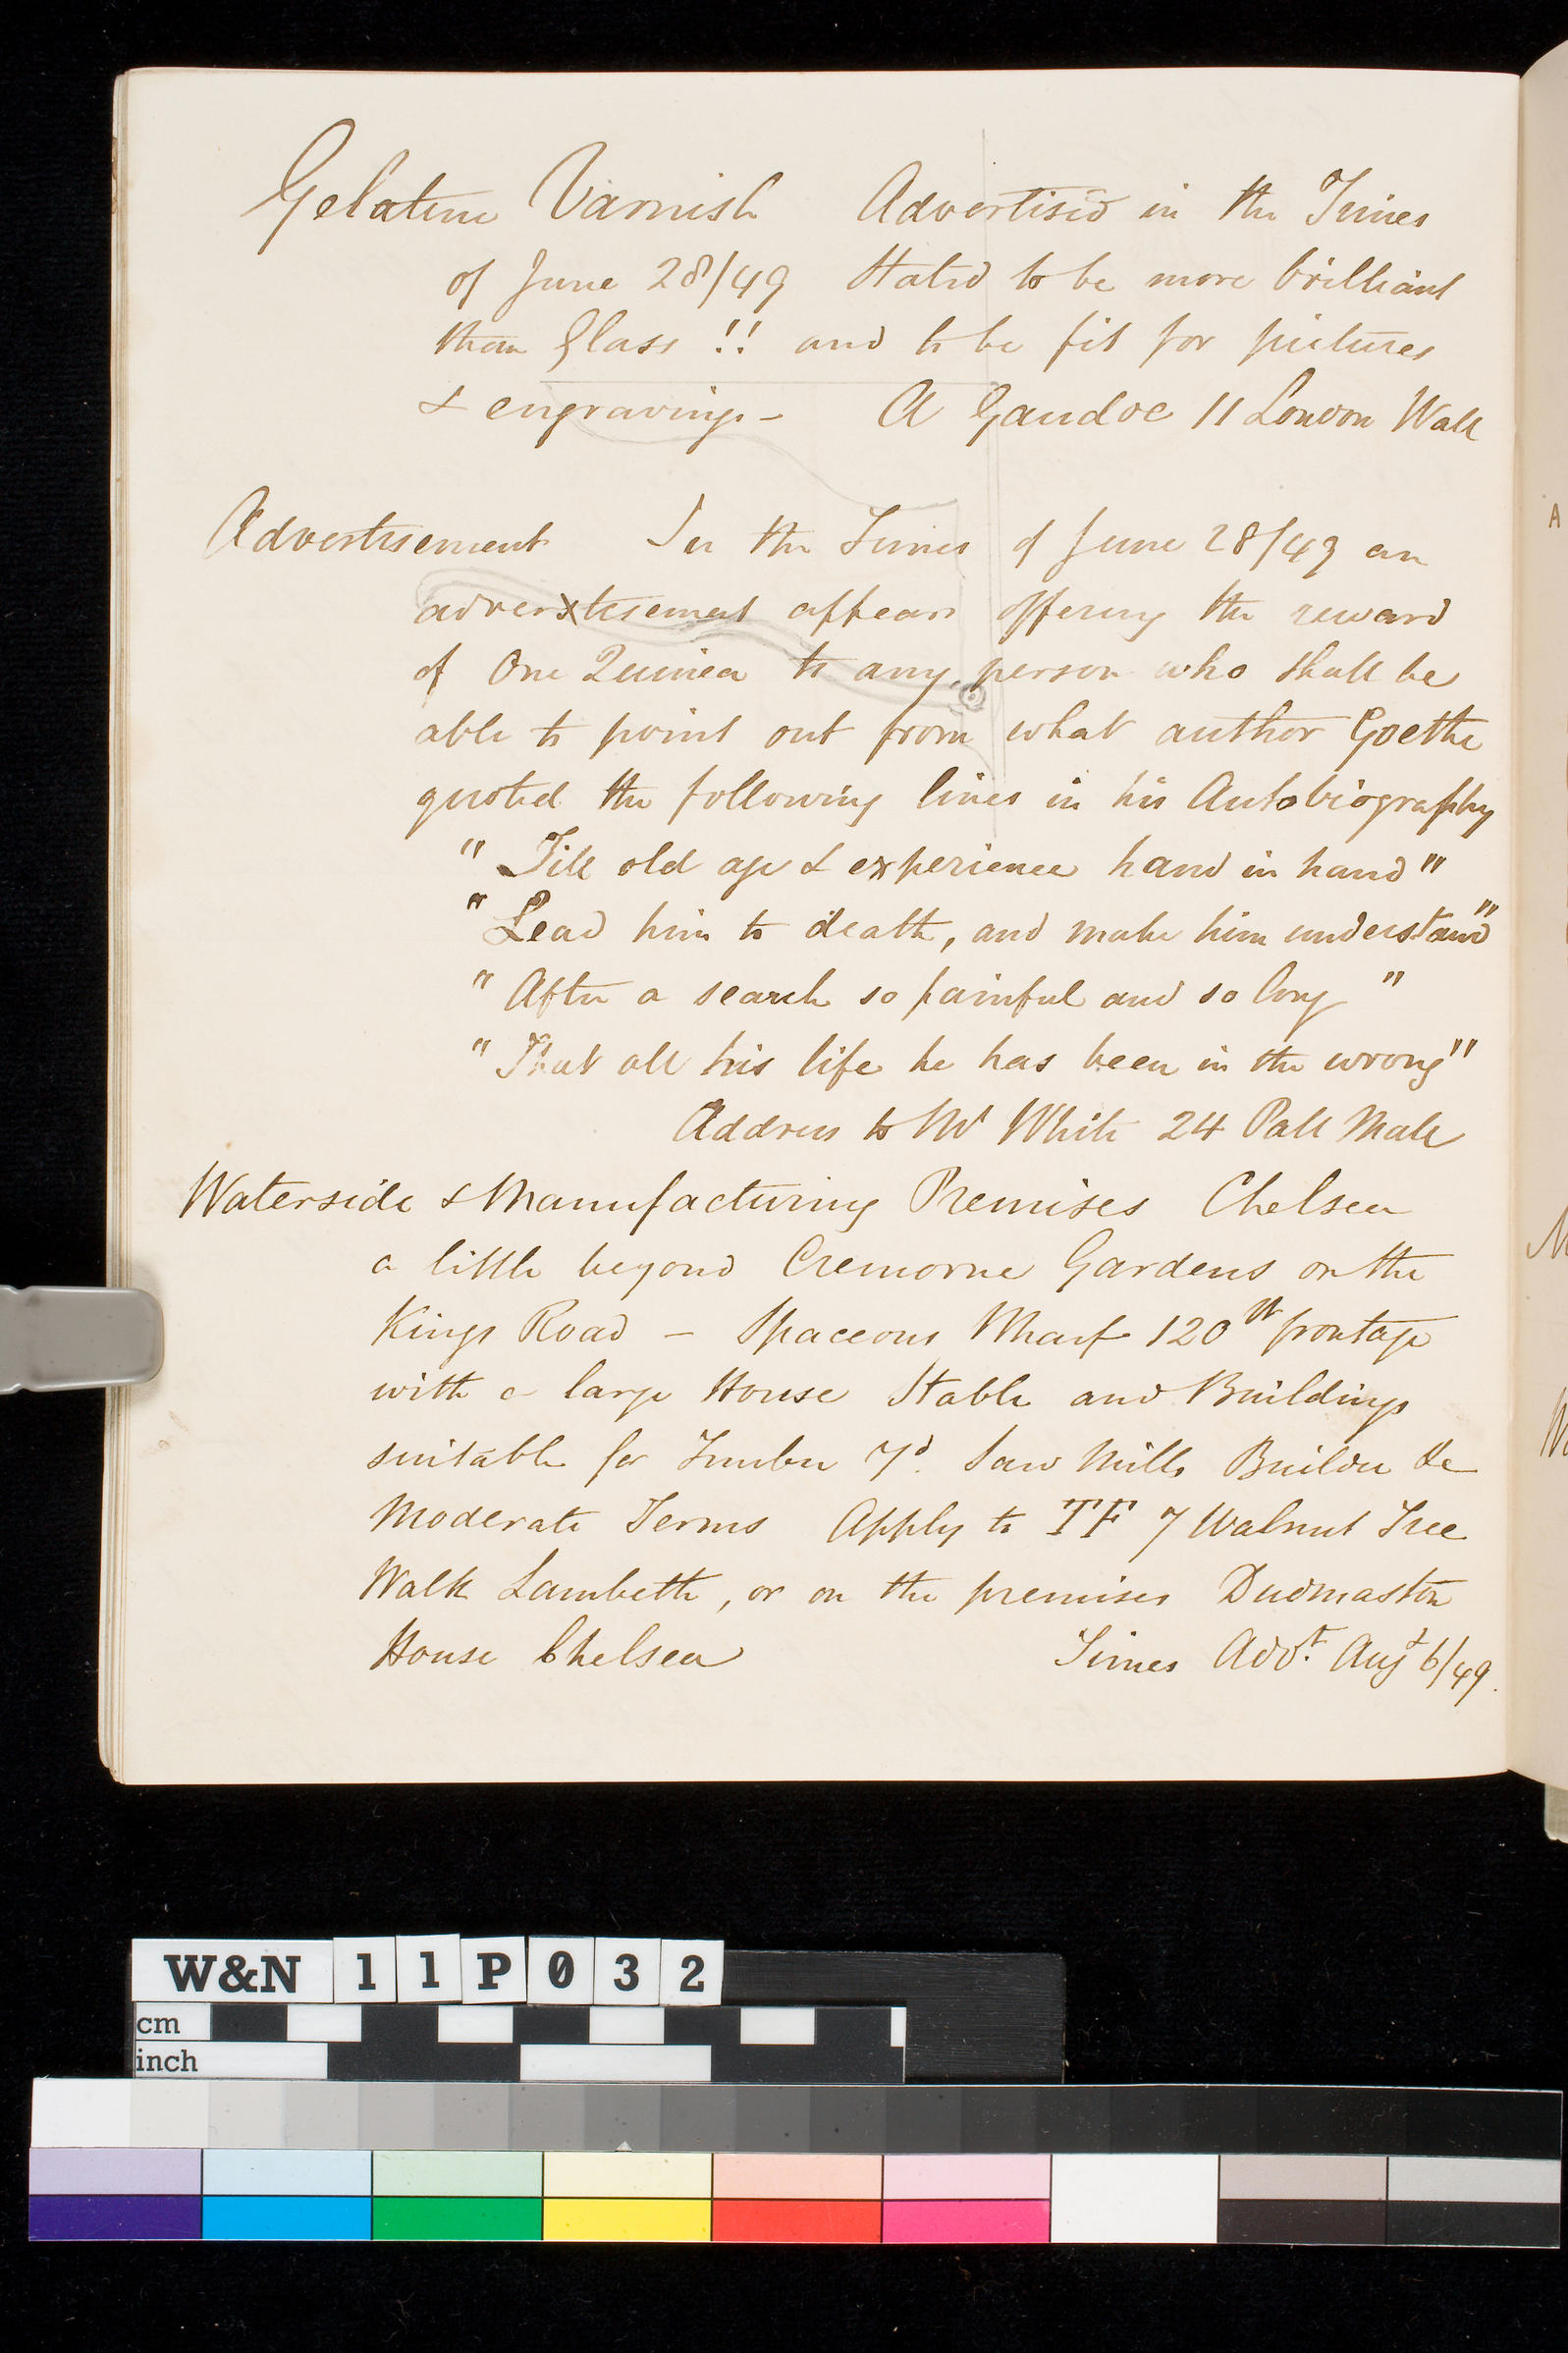 Gelatine Varnish Advertised in the Times
of June 28/49 Stated to be more brilliant
than Glass !! and to be fit for pictures
& engravings - A Gaudoc 11 London Wall
Advertisement In the Times of June 28/49 an
advertisement appears offering the reward
of One Guinea to any person who shall be
able to point out from what author Goethe
quoted the following lines in his Autobiography
" Till old age & experience hand in hand "
" Lead him to death, and make him understand "
" After a search so painful and so long "
" That all his life he has been in the wrong "
Address to Mr White 24 Pall Mall
Waterside & Manufacturing Premises Chelsea
a little beyond Cremorne Gardens on the
Kings Road - Spaceous Wharf 120 ft frontage
with a large House Stable and Buildings
suitable for Timber Yd. Saw Mills Builder &c
Moderate Terms Apply to TF 7 Walnut Tree
Walk Lambeth, or on the premises Dudmaston
House Chelsea Times Advt. Augt 6/49.
W&N 11P032
cm
inch